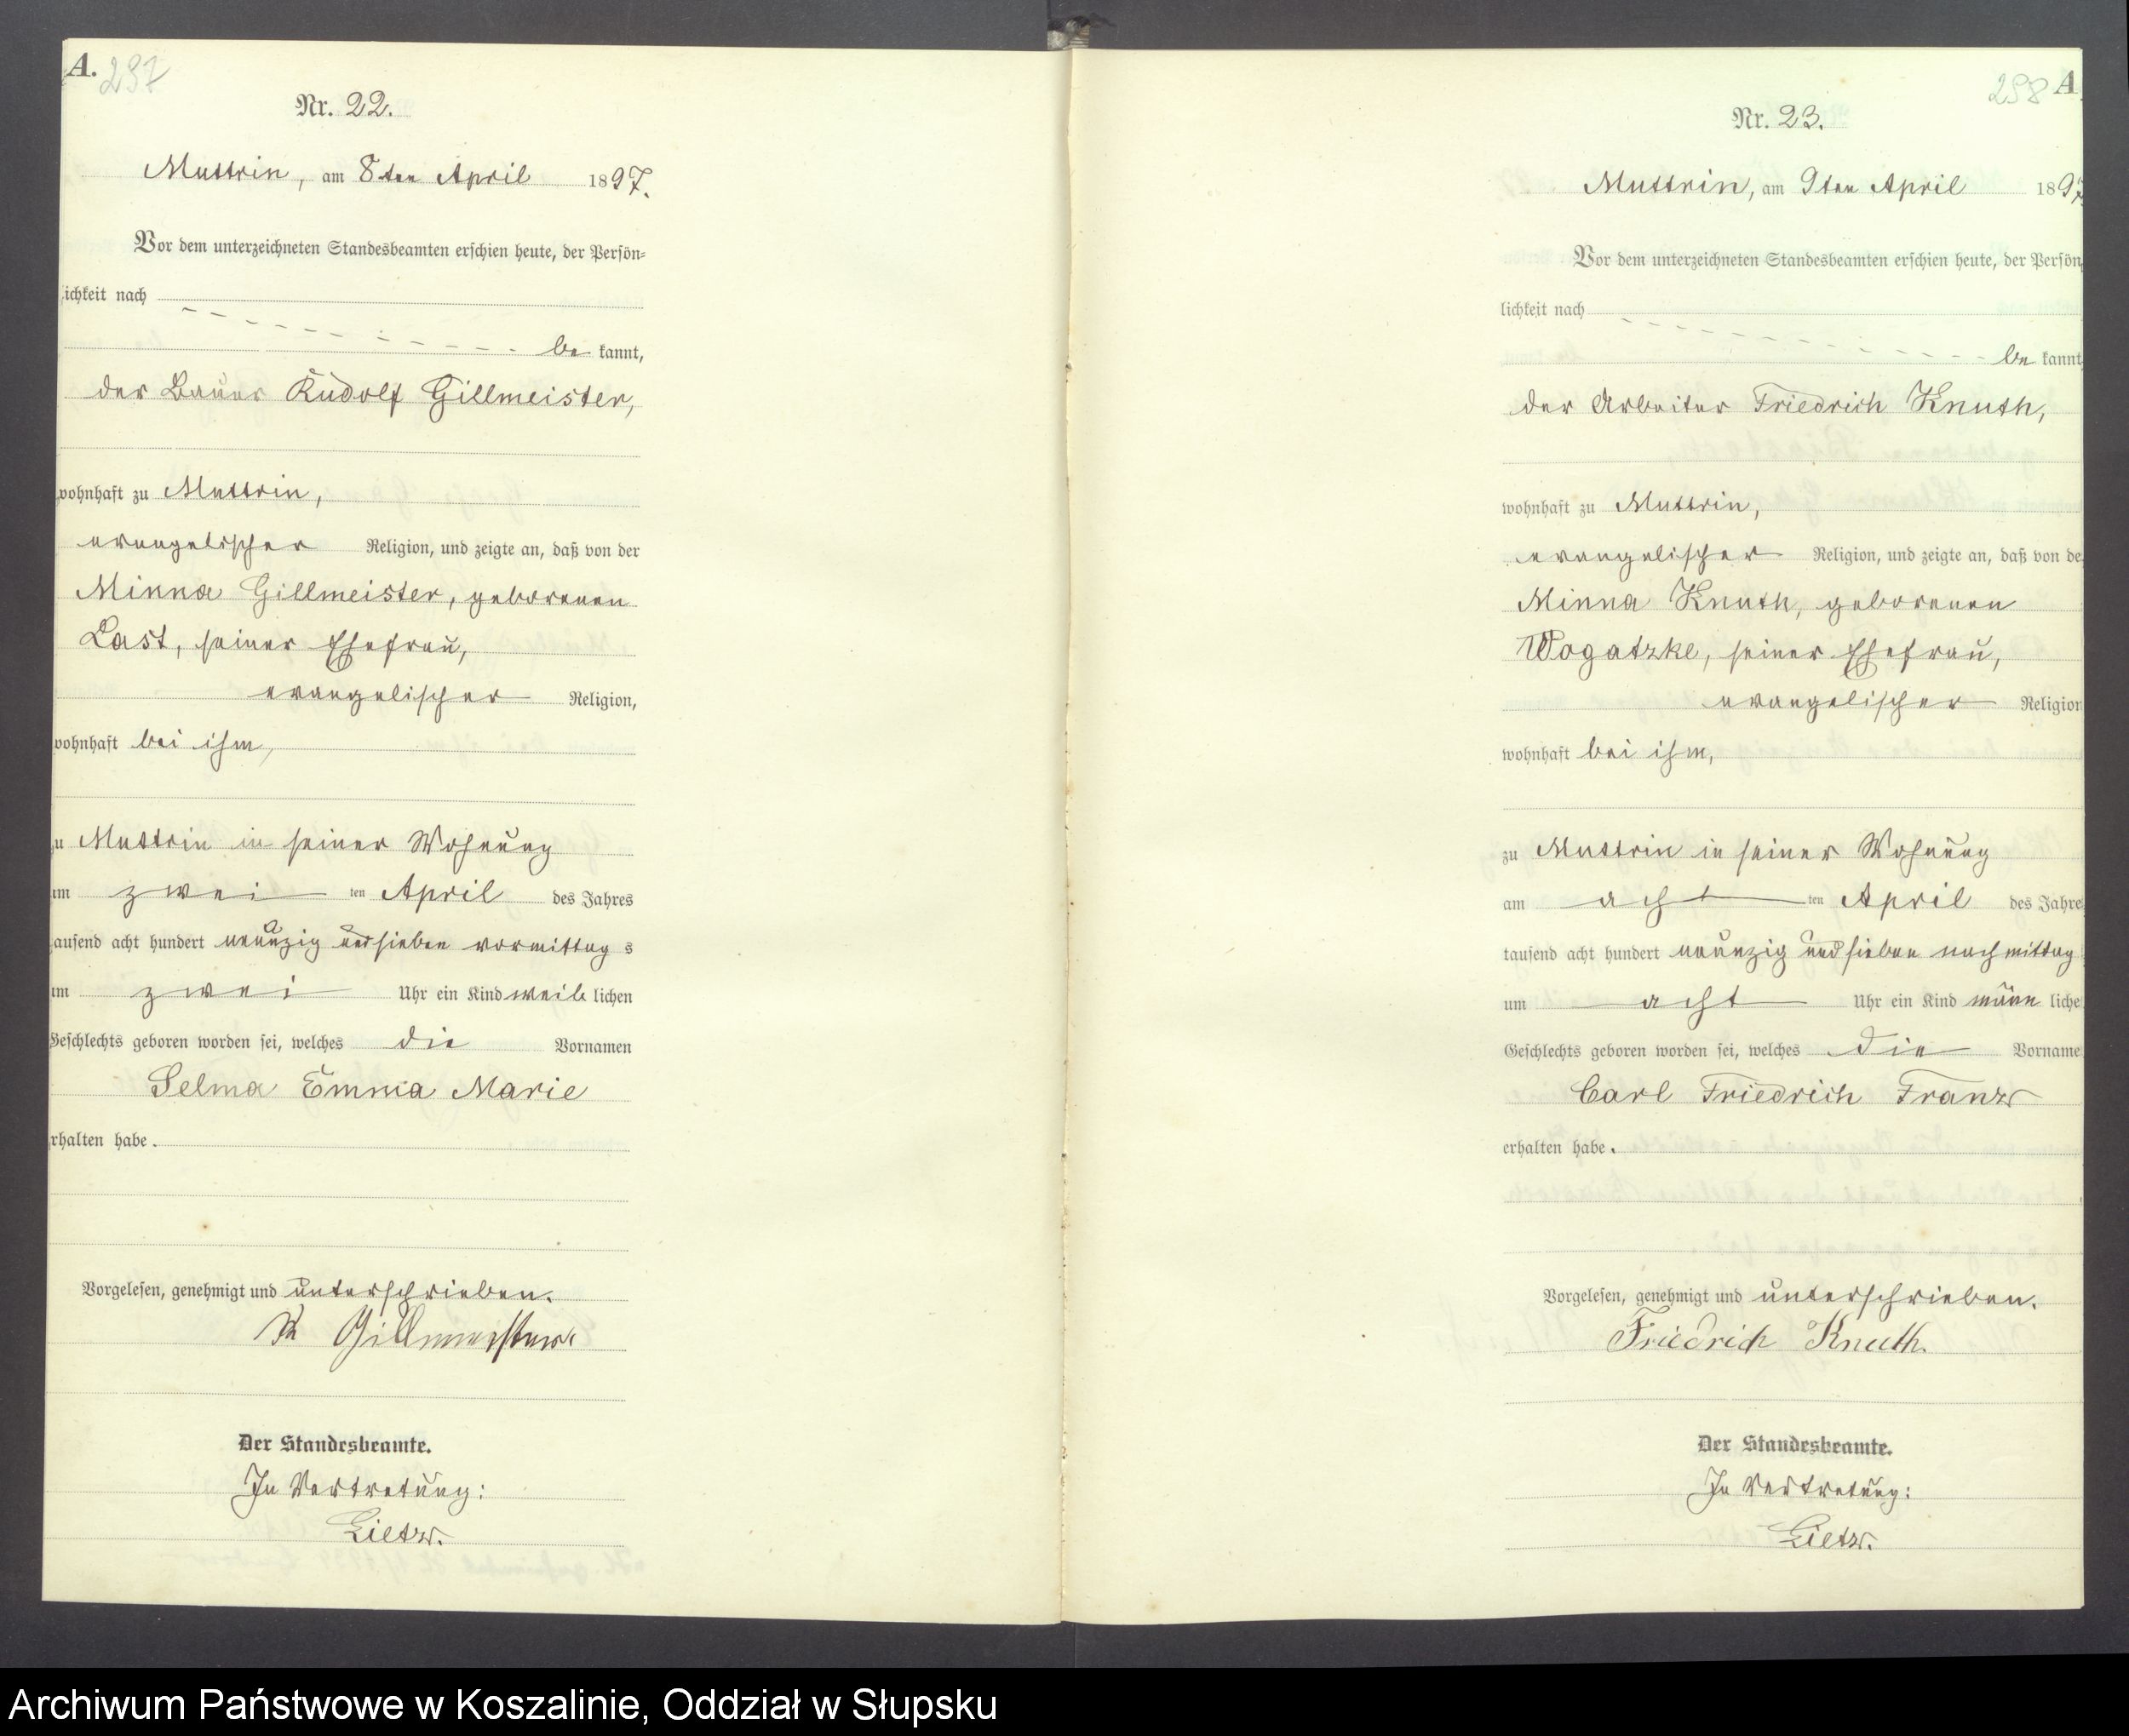 A. 297
Nr. 22.
Muttrin, am 8ten April 1897.
Vor dem unterzeichneten Standesbeamten erschien heute, der Persön-
lichkeit nach
be kannt,
der Bauer Rudolf Gillmeister,
wohnhaft zu Muttrin,
evangelischer Religion, und zeigte an, daß von der
Minna Gillmeister, geborenen
Last, seiner Ehefrau,
evangelischer Religion,
wohnhaft bei ihm,
zu Muttrin in seiner Wohnung
am zwei ten April des Jahres
tausend acht hundert neunzig und sieben vormittag s
um zwei Uhr ein Kind weib lichen
Geschlechts geboren worden sei, welches die Vornamen
Selma Emma Marie
erhalten habe.
Vorgelesen, genehmigt und unterschrieben.
Gillmeister
Der Standesbeamte.
In Vertretung:
Lietz.
298 A
Nr. 23.
Muttrin, am 9ten April 1897
Vor dem unterzeichneten Standesbeamten erschien heute, der Persön
lichkeit nach
be kannt
der Arbeiter Friedrich Knuth,
wohnhaft zu Muttrin,
evangelischer Religion, und zeigte an, daß von de
Minna Knuth, geborenen
Wogatzke, seiner Ehefrau,
evangelischer Religion
wohnhaft bei ihm,
zu Muttrin in seiner Wohnung
am acht ten April des Jahre
tausend acht hundert neunzig und sieben nachmittag
um acht Uhr ein Kind männ liche
Geschlechts geboren worden sei, welches die Vorname
Carl Friedrich Franz
erhalten habe.
Vorgelesen, genehmigt und unterschrieben.
Friedrich Knuth.
Der Standesbeamte.
In Vertretung:
Lietz.
Archiwum Państwowe w Koszalinie, Oddział w Słupsku